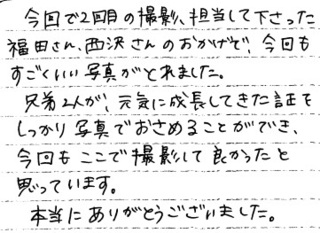 今回で2回目の撮影、担当して下さった
福田さん、西沢さんのおかげで、今回も
すごくいい写真がとれました。
兄弟2人が、元気に成長してきた証を
しっかり写真でおさめることができ、
今回もここで撮影して良かったと
思っています。
本当にありがとうございました。